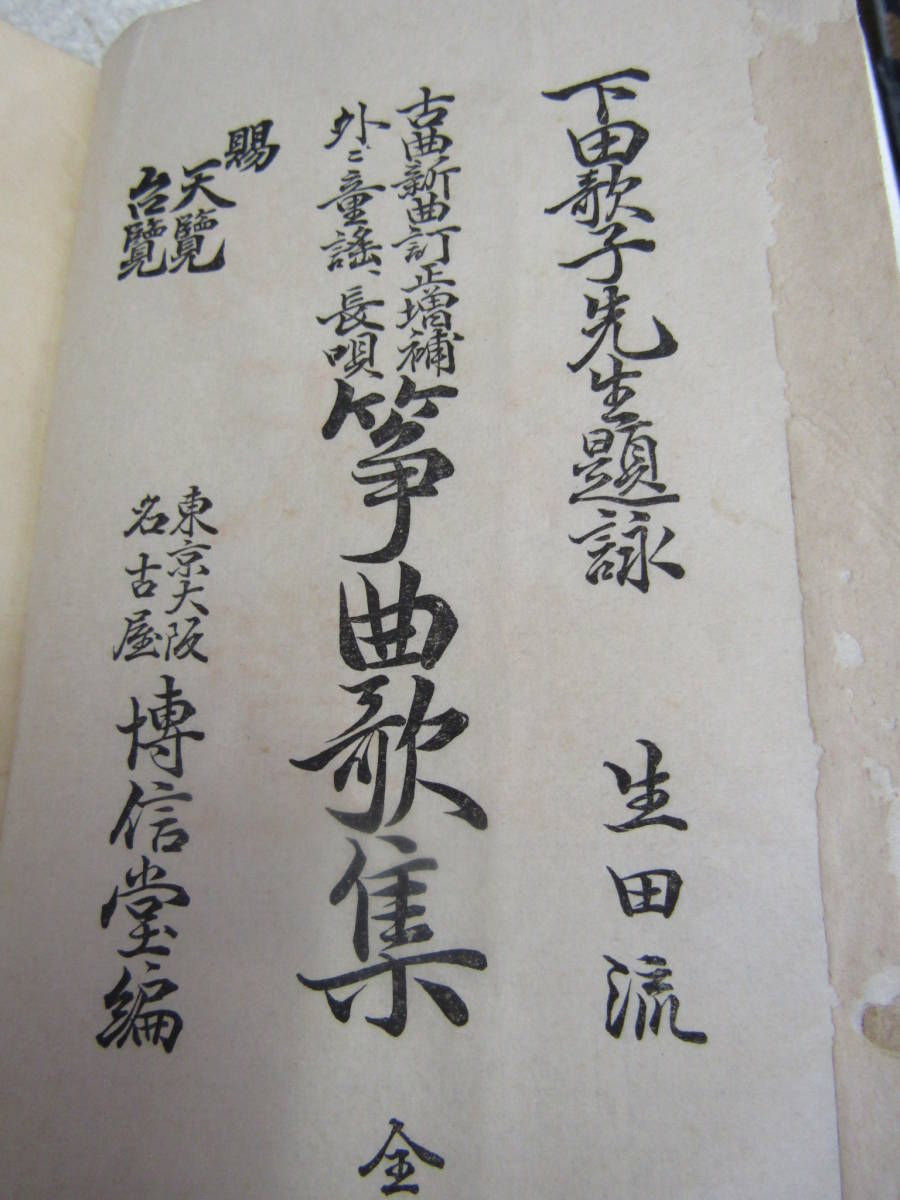 下田歌子先生題詠
生田流
古曲新曲訂正増補
外ニ童謡、長唄
箏曲歌集
全
賜
天覽
台覽
東京大阪
名古屋
博信堂編